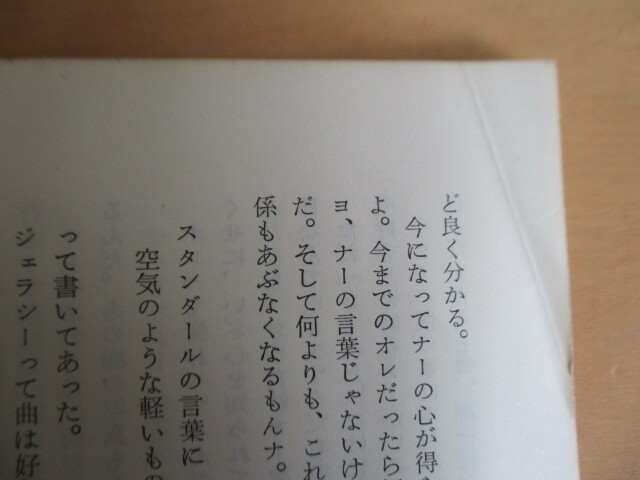 ど良く分かる。
今になってナーの心が得
よ。今までのオレだったら
ヨ、ナーの言葉じゃないけ
だ。そして何よりも、これ
係もあぶなくなるもんナ。
スタンダールの言葉に
空気のような軽いもの
って書いてあった。
ジェラシーって曲は好